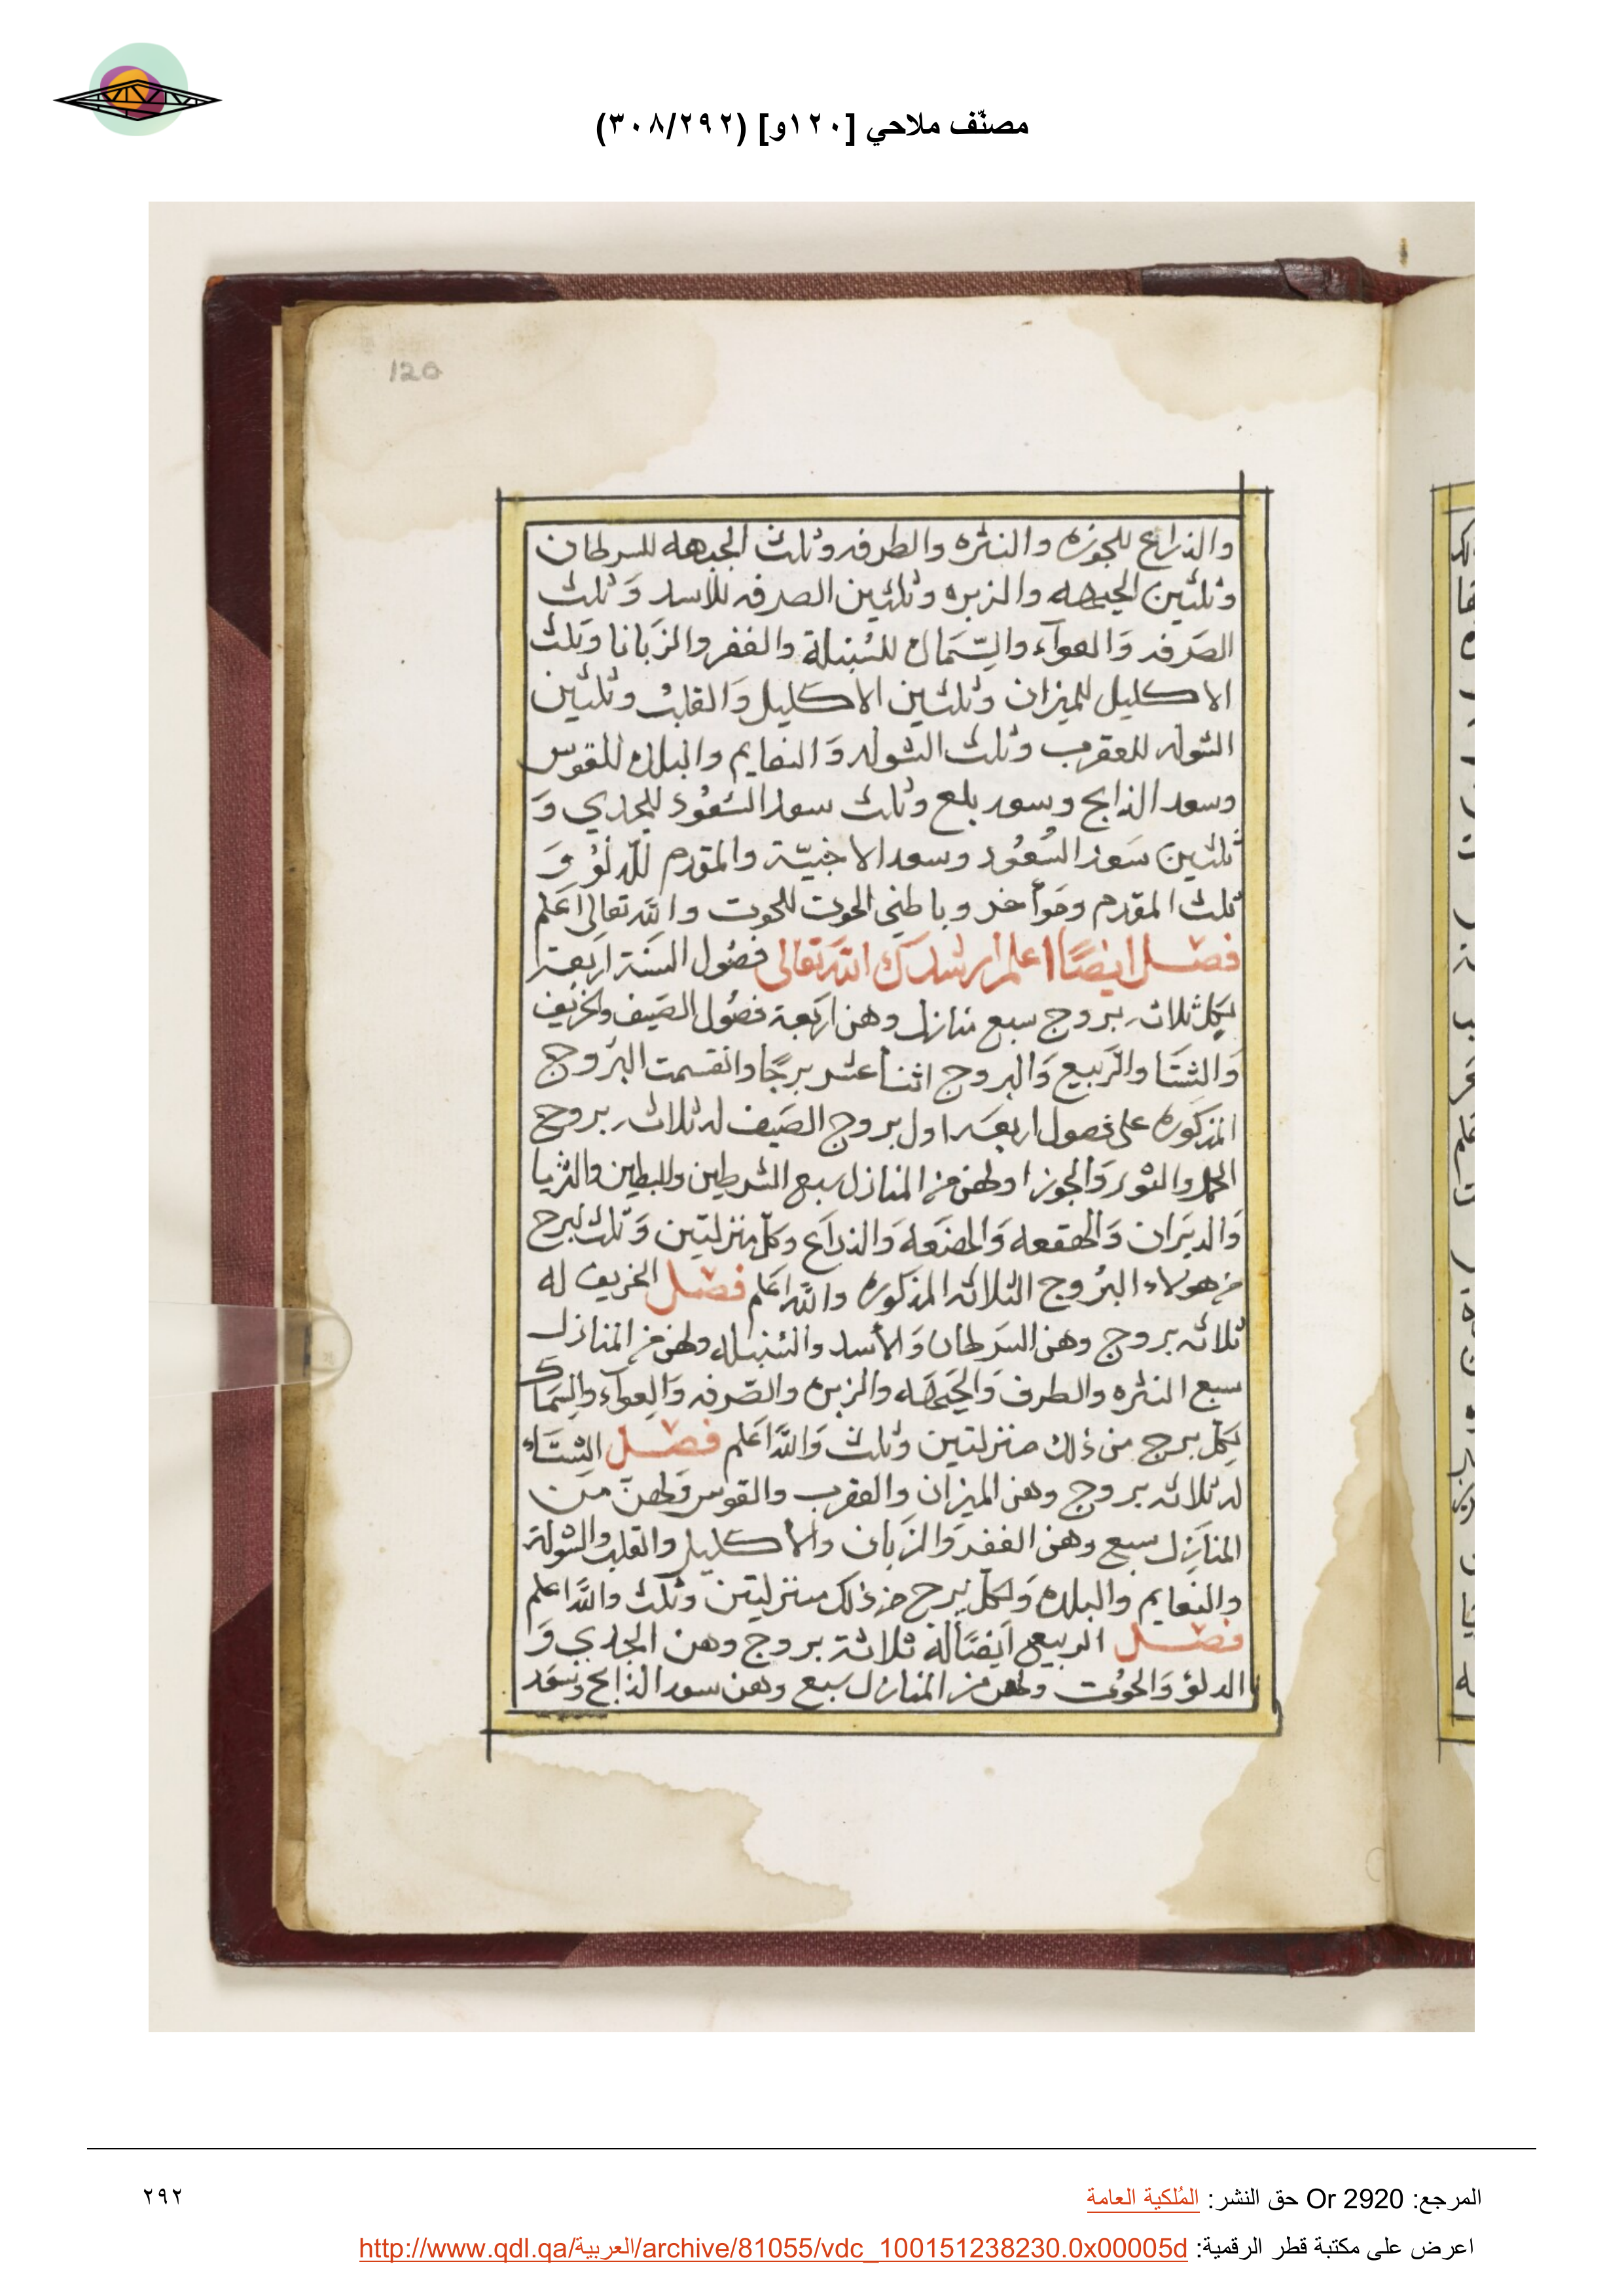 مصنّف ملاحي [١٢٠و] (٣٠٨/٢٩٢)
120
والذراع للجوزه والنثره والطرفه وثلث الجبهه للسرطان
وثلثين الجبهه والزبره وثلثين الصرفه للاسد وَثلث
الصَرفه وَالعوآء والسِّمَاك للسُنبلة والغفر والزَبانا وَثلث
الاكليل للميزان وثلثين الاكليل وَالقلبْ وثلثين
الشوله للعقرب وثلث الشوله وَالنعايم والبلده للقوس
وسعد الذابح وسعد بلع وثلث سعد السُعُود للجدي وَ
ثلثين سَعد السُعُود وسعد الاخبيّة والمقدم للدلوْ وَ
ثلث المقدم وموأخر وباطني الحوت للحوت والله تعالى اعَلم
فصل ايضًا اعلم ارشدك الله تعالى فصُول السَنة اربَعة
لكل ثلاثه بروج سبع منازل وهن اربَعة فصُول الصَيف والخريف
وَالشتَا والرَبيع وَالبروج اثنا عشر برجًا وانقسمت البرُوج
المذكوره على فصول اربعَه اول بروج الصَيف له ثلاثه بروج
الحمل والثور وَالجوزا ولهن من المنازل سبع الشرطين والبطين والثريا
وَالدبَران وَالهقعه وَالهنعَه وَالذراَع وكل منزلتين وَثلث لبرج
من هولاء البرُوج الثلاثه المذكوره والله اعَلم فصل الخريف له
ثلاثه بروج وهن السَرطان وَالأسد والسُنبله ولهن من المنازل
سبع النثره والطرف وَالجَبهَه والزبره والصَّرفه وَالعوآء والسِمَاك
لكل برج من ذلك منزلتين وثلث وَاللهُ اعَلم فصل الشتَاء
له ثلاثه بروج وهن الميزان والعقرب والقوس وَلهنّ من
المنازل سبع وهن الغفر وَالزَبان والاكليل والقلب والشولة
والنعايم والبلده وَلكل برج من ذلك منزلتين وثلث واللهُ اعلم
فصل الربيع ايضًا له ثلاثة بروج وهن الجدي وَ
الدلوْ وَالحوُت ولهن من المنازل سَبع وهن سعد الذابح وسَعَد
المرجع: Or 2920 حق النشر: المُلكية العامة
٢٩٢
اعرض على مكتبة قطر الرقمية: http://www.qdl.qa/العربية/archive/81055/vdc_100151238230.0x00005d